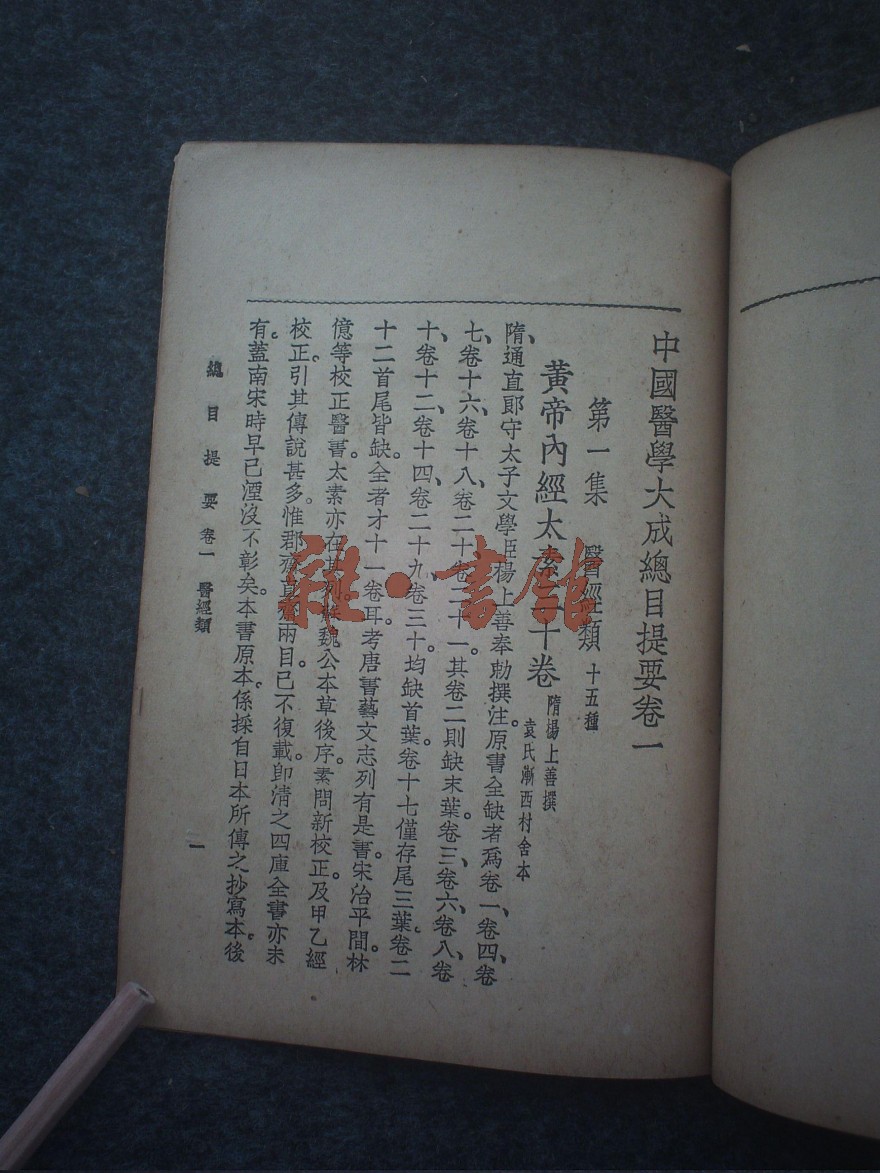 中國醫學大成總目提要卷一
第一集 醫經類 十五種
黃帝內經太素三十卷 隋楊上善撰
袁氏漸西村舍本
隋通直郞守太子文學臣楊上善奉勅撰注。原書全缺者爲卷一、卷四、卷
七、卷十六、卷十八、卷二十、卷二十一。其卷二則缺末葉。卷三、卷六、卷八、卷
十、卷十二、卷十四、卷二十九、卷三十。均缺首葉。卷十七僅存尾三葉。卷二
十二首尾皆缺。全者才十一卷耳。考唐書藝文志列有是書。宋治平間。林
億等校正醫書。太素亦在其列。魏公本草後序。素問新校正。及甲乙經
校正。引其傳說甚多。惟郡齋直齋兩目。已不復載。卽淸之四庫全書亦未
有。蓋南宋時早已湮沒不彰矣。本書原本。係採自日本所傳之抄寫本。後
總目提要 卷一 醫經類
一
雜·書館